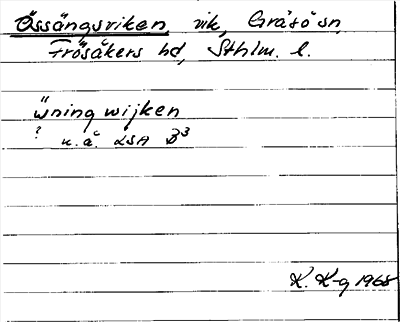 Össängsviken, vik, Gräsö sn,
Frösåkers hd, Sthlm. l.
wningwijken
? u.å. LSA B3
K. K-g 1968